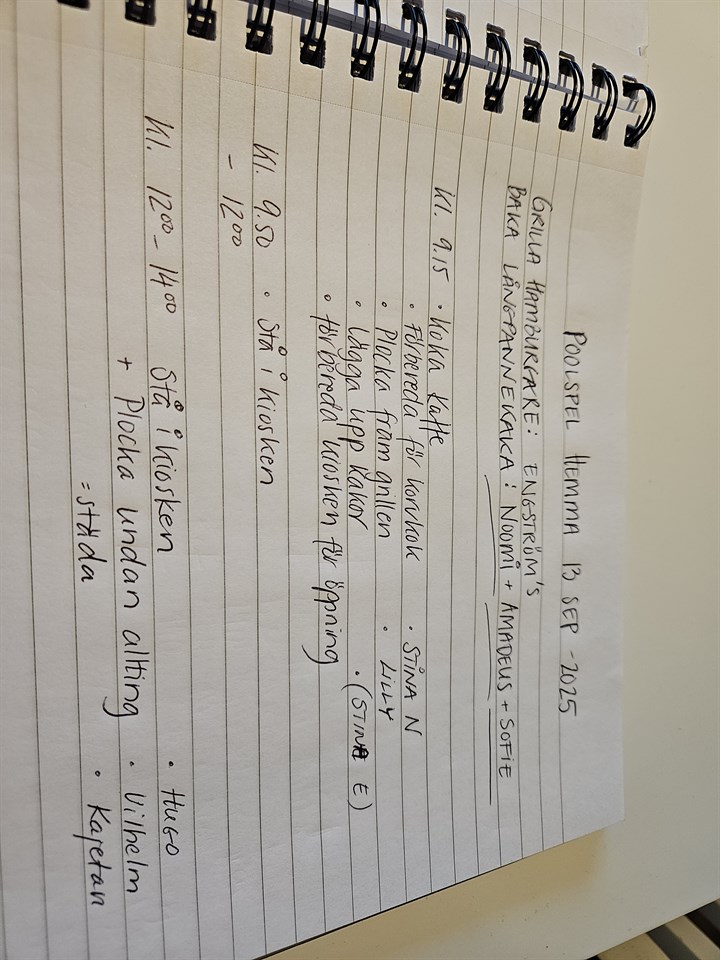 POOLSPEL HEMMA 13 SEP - 2025
GRILLA HAMBURGARE: ENGSTRÖM'S
BAKA LÅNGPANNEKAKA: NOOMI + AMADEUS + SOFIE
Kl. 9.15 • Koka kaffe
• Förbereda för korvkok • STINA N
• Plocka fram grillen • LILLY
• Lägga upp kakor • (STINA E)
• förbereda kiosken för öppning
Kl. 9.50 • Stå i kiosken
- 12⁰⁰
Kl. 12⁰⁰ - 14⁰⁰ Stå i kiosken • HUGO
+ Plocka undan allting • Vilhelm
= städa • Kajetan